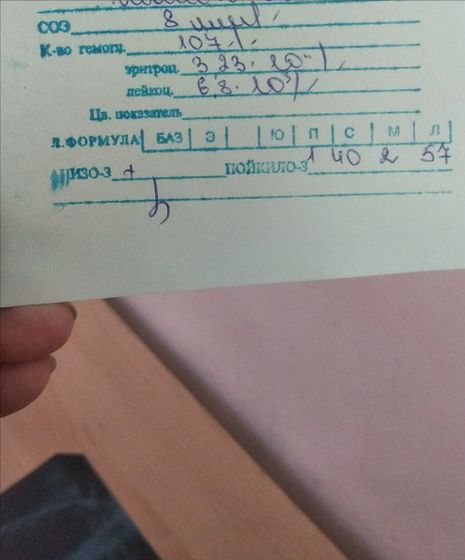 СОЭ 8 мм/
К-во гемогл. 107
эритроц. 3,23 · 10
лейкоц. 6,8 · 10
Цв. показатель
Л.ФОРМУЛА БАЗ Э Ю П С М Л
1 40 2 57
ИЗО-З + ПОЙКИЛО-З